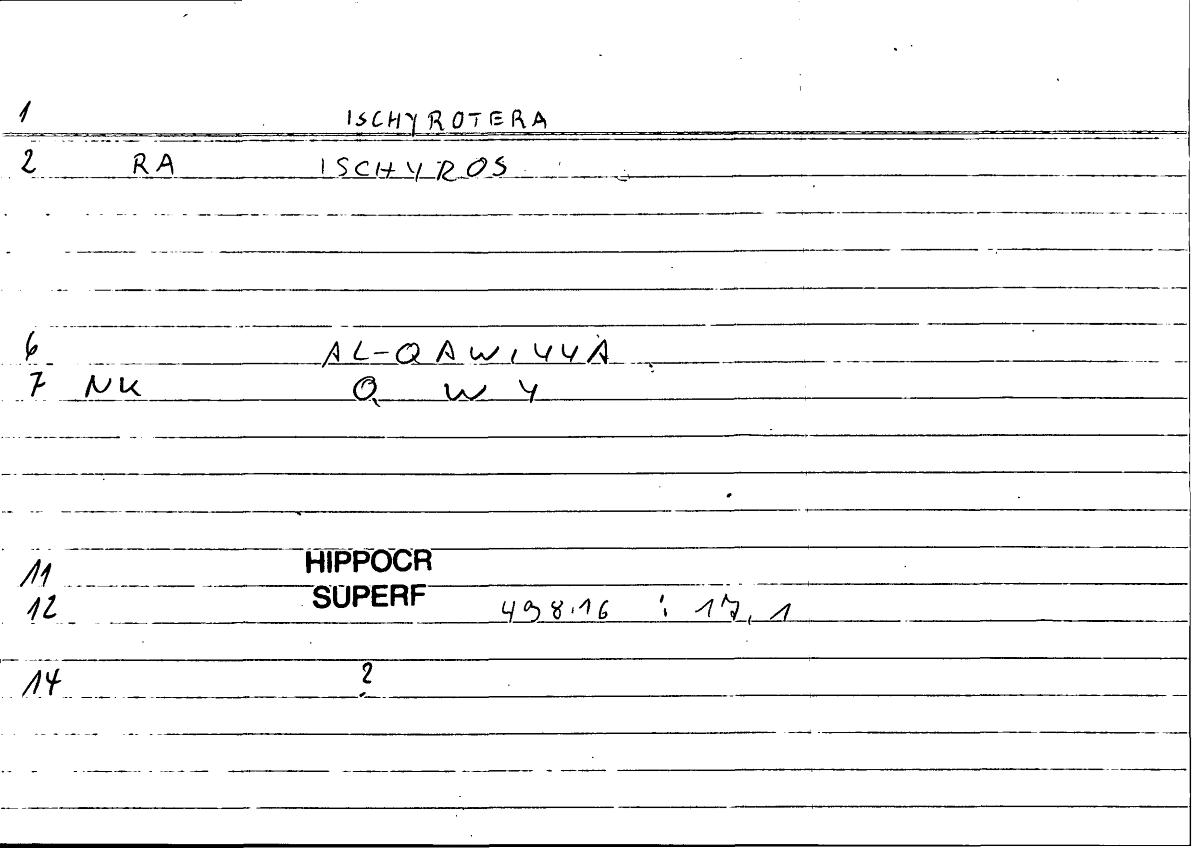 1 ISCHYROTERA
2 RA ISCHYROS
6 AL-QAWIYYA
7 NK Q W Y
11 HIPPOCR
12 SUPERF 498.16 : 17,1
14 ?